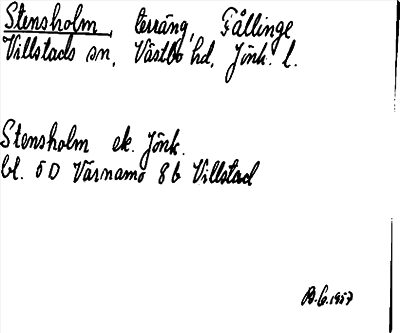 Stensholm, terräng, Fållinge
Villstads sn, Västbo hd, Jönk. l.
Stensholm ek. Jönk.
bl. 5D Värnamo 8b Villstad
1957